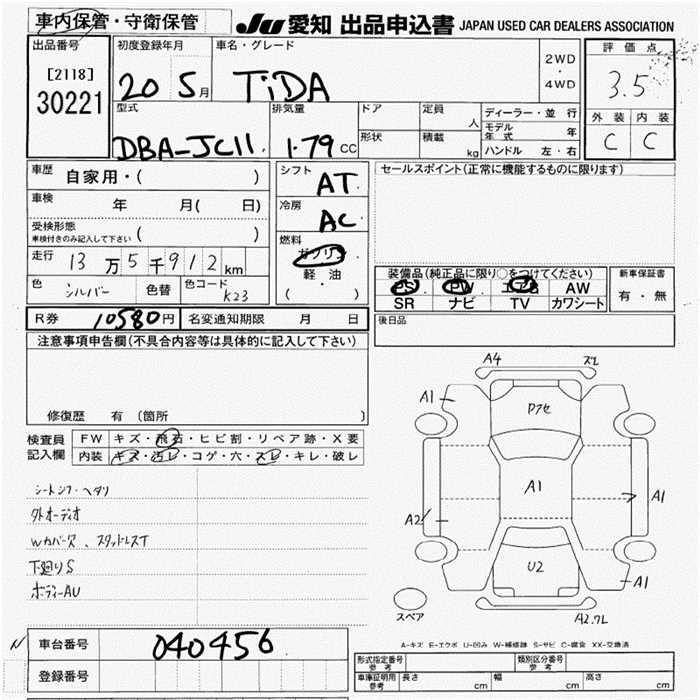 車内保管・守衛保管
JU 愛知 出品申込書 JAPAN USED CAR DEALERS ASSOCIATION
出品番号
[2118]
30221
初度登録年月
20 5月
車名・グレード
TiDA
2WD
・
4WD
評価点
3.5
外装 内装
C C
型式
DBA-JC11
排気量
1.79 CC
ドア
形状
定員
人
積載
kg
ディーラー・並行
モデル年式 年
ハンドル 左・右
車歴
自家用・( )
車検
年 月( 日)
受検形態
車検付きのみ記入して下さい ( )
走行
13万5千912km
色
シルバー
色替
色コード
K23
シフト
AT
冷房
AC
燃料
ガソリン
軽・油
( )
セールスポイント(正常に機能するものに限ります)
装備品(純正品に限り○をつけてください)
PS PW エアB AW
SR ナビ TV カワシート
新車保証書
有・無
後日品
R券 10580円 名変通知期限 月 日
注意事項申告欄(不具合内容等は具体的に記入して下さい)
修復歴 有 (箇所 )
検査員
記入欄
FW キズ・飛石・ヒビ割・リペア跡・X要
内装 キズ・汚レ・コゲ・穴・スレ・キレ・破レ
シートシワ・ヘタリ
外オーディオ
Wカバー欠、スタッドレスT
下廻りS
ボディーAU
A4 スレ
A1
Dアセ
A1
A2
A1
U2
A1
スペア
A2.7L
A-キズ E-エクボ U-凹み W-補修跡 S-サビ C-腐食 XX-交換済
車台番号 040456
登録番号
型式指定番号
参考
類別区分番号
参考
車庫証明用
参考
長さ cm 幅 cm 高さ cm